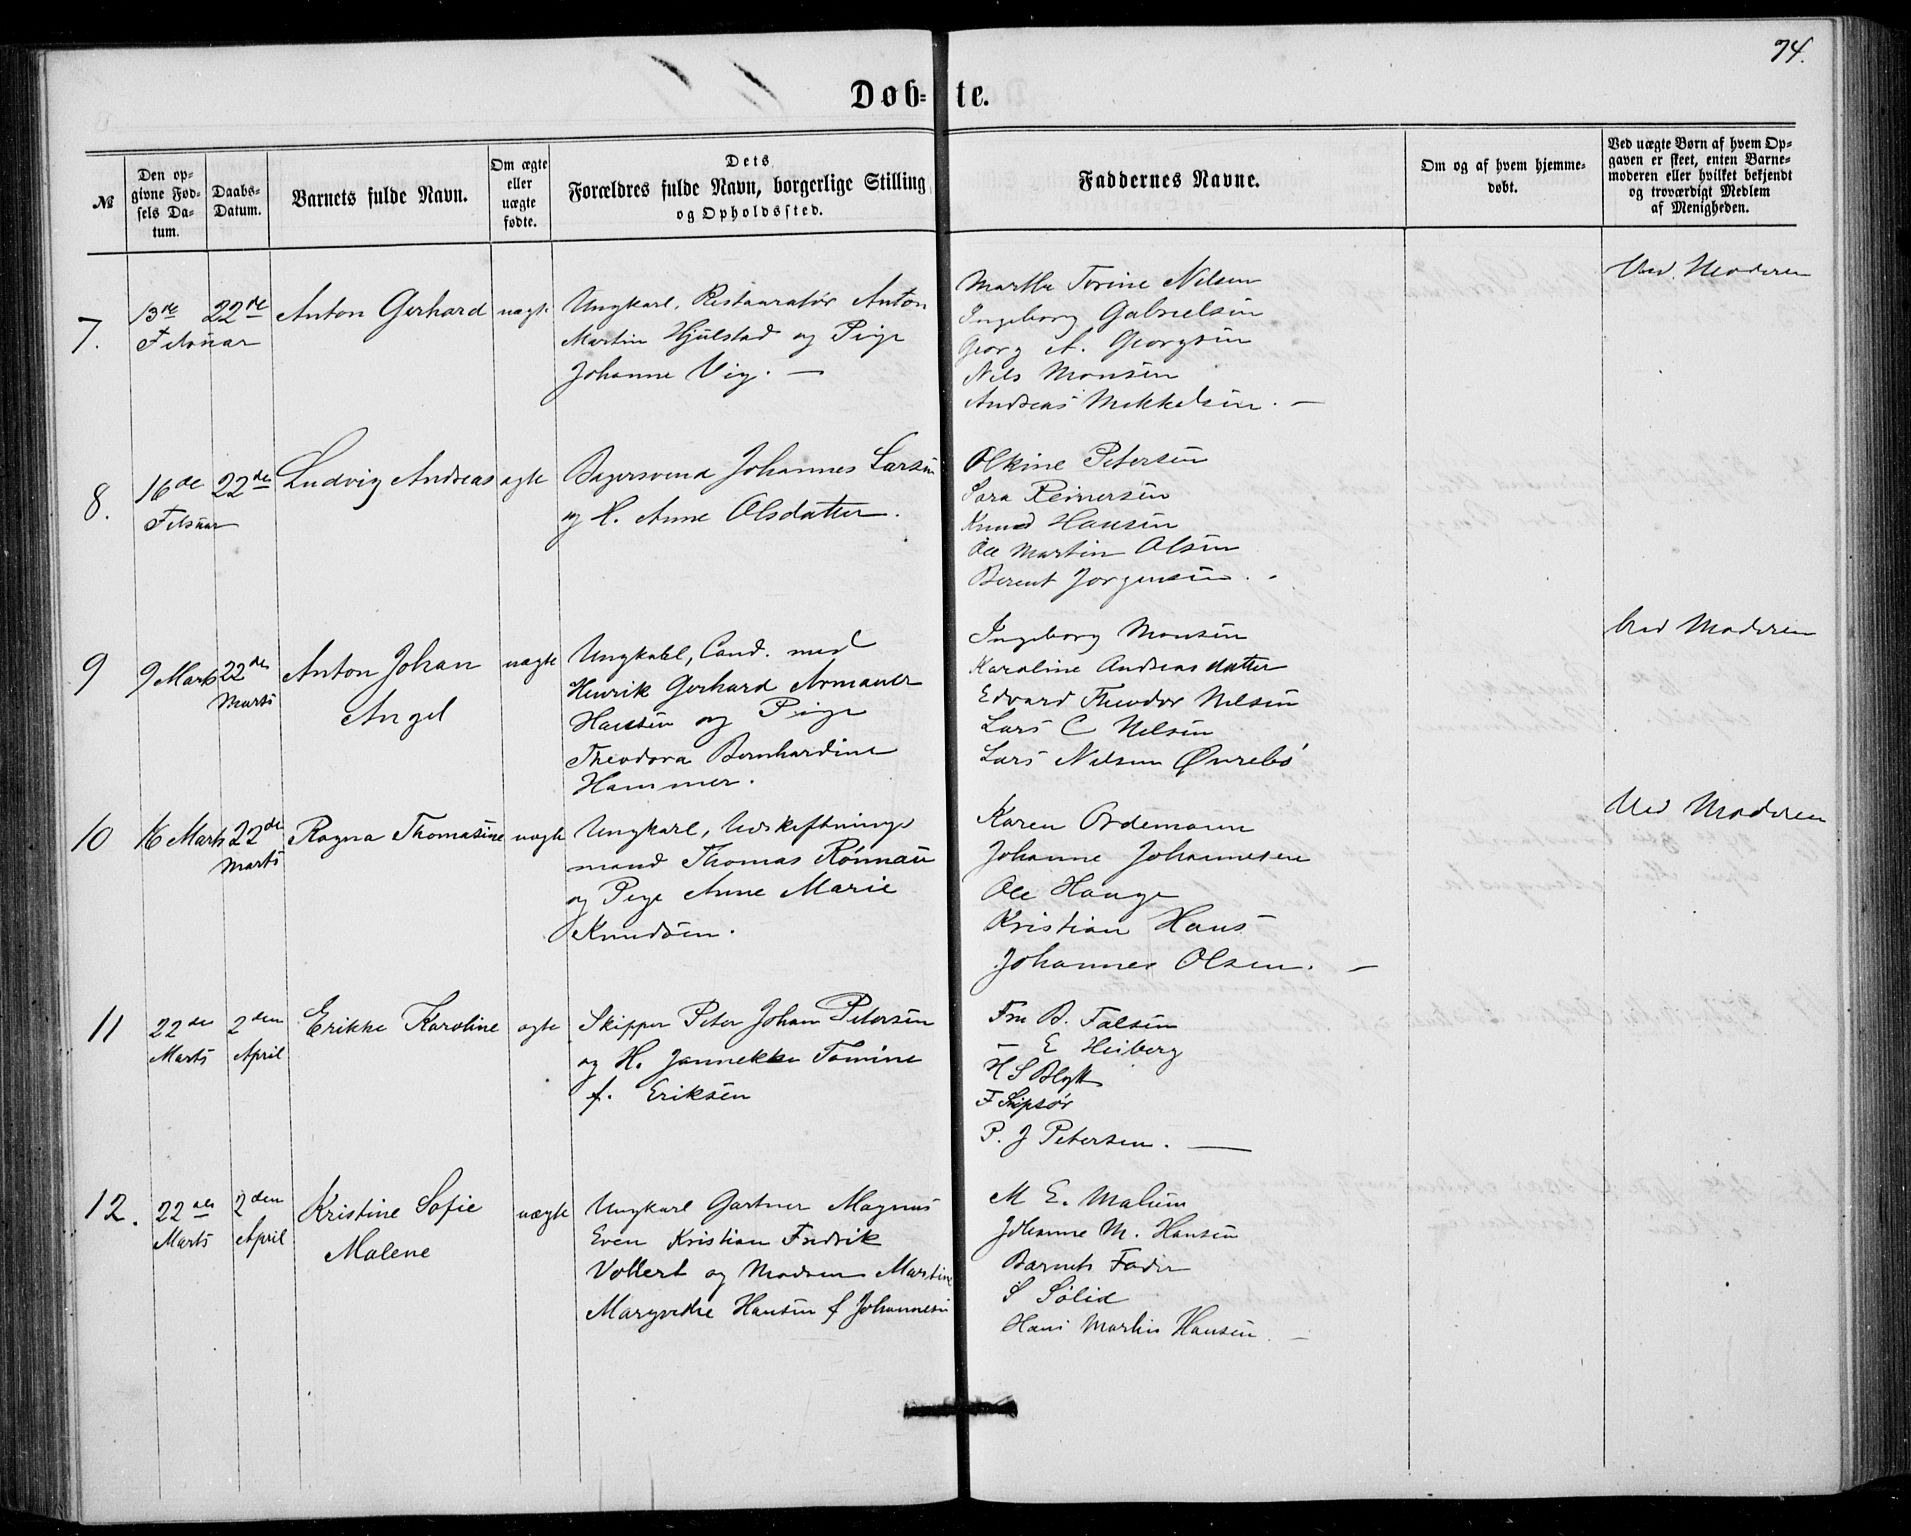 74.
Døb- te.
№
Den op-
givne Fød-
sels Da-
tum.
Daabs-
Datum.
Barnets fulde Navn.
Om ægte
eller
uægte
fødte.
Dets
Forældres fulde Navn, borgerlige Stilling
og Opholdssted.
Faddernes Navne.
Om og af hvem hjemme-
døbt.
Ved uægte Børn af hvem Op-
gaven er skeet, enten Barne-
moderen eller hvilket bekjendt
og troværdigt Medlem
af Menigheden.
7.
13de
Februar
22de
Anton Gerhard
uægte
Ungkarl, Restauratør Anton
Martin Hjulstad og Pige
Johanne Vig. —
Martha Torine Nilsen
Ingeborg Gabrielsen
Georg A. Georgsen
Nils Monsen
Andreas Mikkelsen. —
Ved Moderen
8.
16de
Februar
22de
Ludvig Andreas
ægte
Bagersvend Johannes Larsen
og H. Anne Olsdatter.
Olkine Petersen
Sara Reinersen
Knud Hansen
Ole Martin Olsen
Berent Jørgensen.
9
9 Marts
22de
Marts
Anton Johan
Angel
uægte
Ungkarl, Cand. med
Henrik Gerhard Armauer
Hansen og Pige
Theodora Bernhardine
Hammer.
Ingeborg Monsen
Karoline Andreasdatter
Edvard Theodor Nilsen
Lars C Nilsen
Lars Nilsen Øvrebø
Ved Moderen
10
16 Marts
22de
Marts
Ragna Thomasine
uægte
Ungkarl, Udskiftnings
mand Thomas Rønnau
og Pige Anne Marie
Knudsen.
Karen Ordemann
Johanne Johannesen
Ole Hauge
Kristian Haus
Johannes Olsen. —
Ved Moderen
11
22de
Marts
2den
April
Erikke Karoline
ægte
Skipper Peter Johan Petersen
og H. Jannekke Tomine
f. Eriksen
Fru B. Falsen
— E Heiberg
H S Blytt
F
P. J Petersen. —
12.
22de
Marts
2den
April
Kristine Sofie
Malene
uægte
Ungkarl Gartner Magnus
Even Kristian Fredrik
Vollert og Madsen Martine
Margrethe Hansen f Johannesen
M E. Malum
Johanne M. Hansen
Barnets Fader
S Solid
Hans Martin Hansen. —